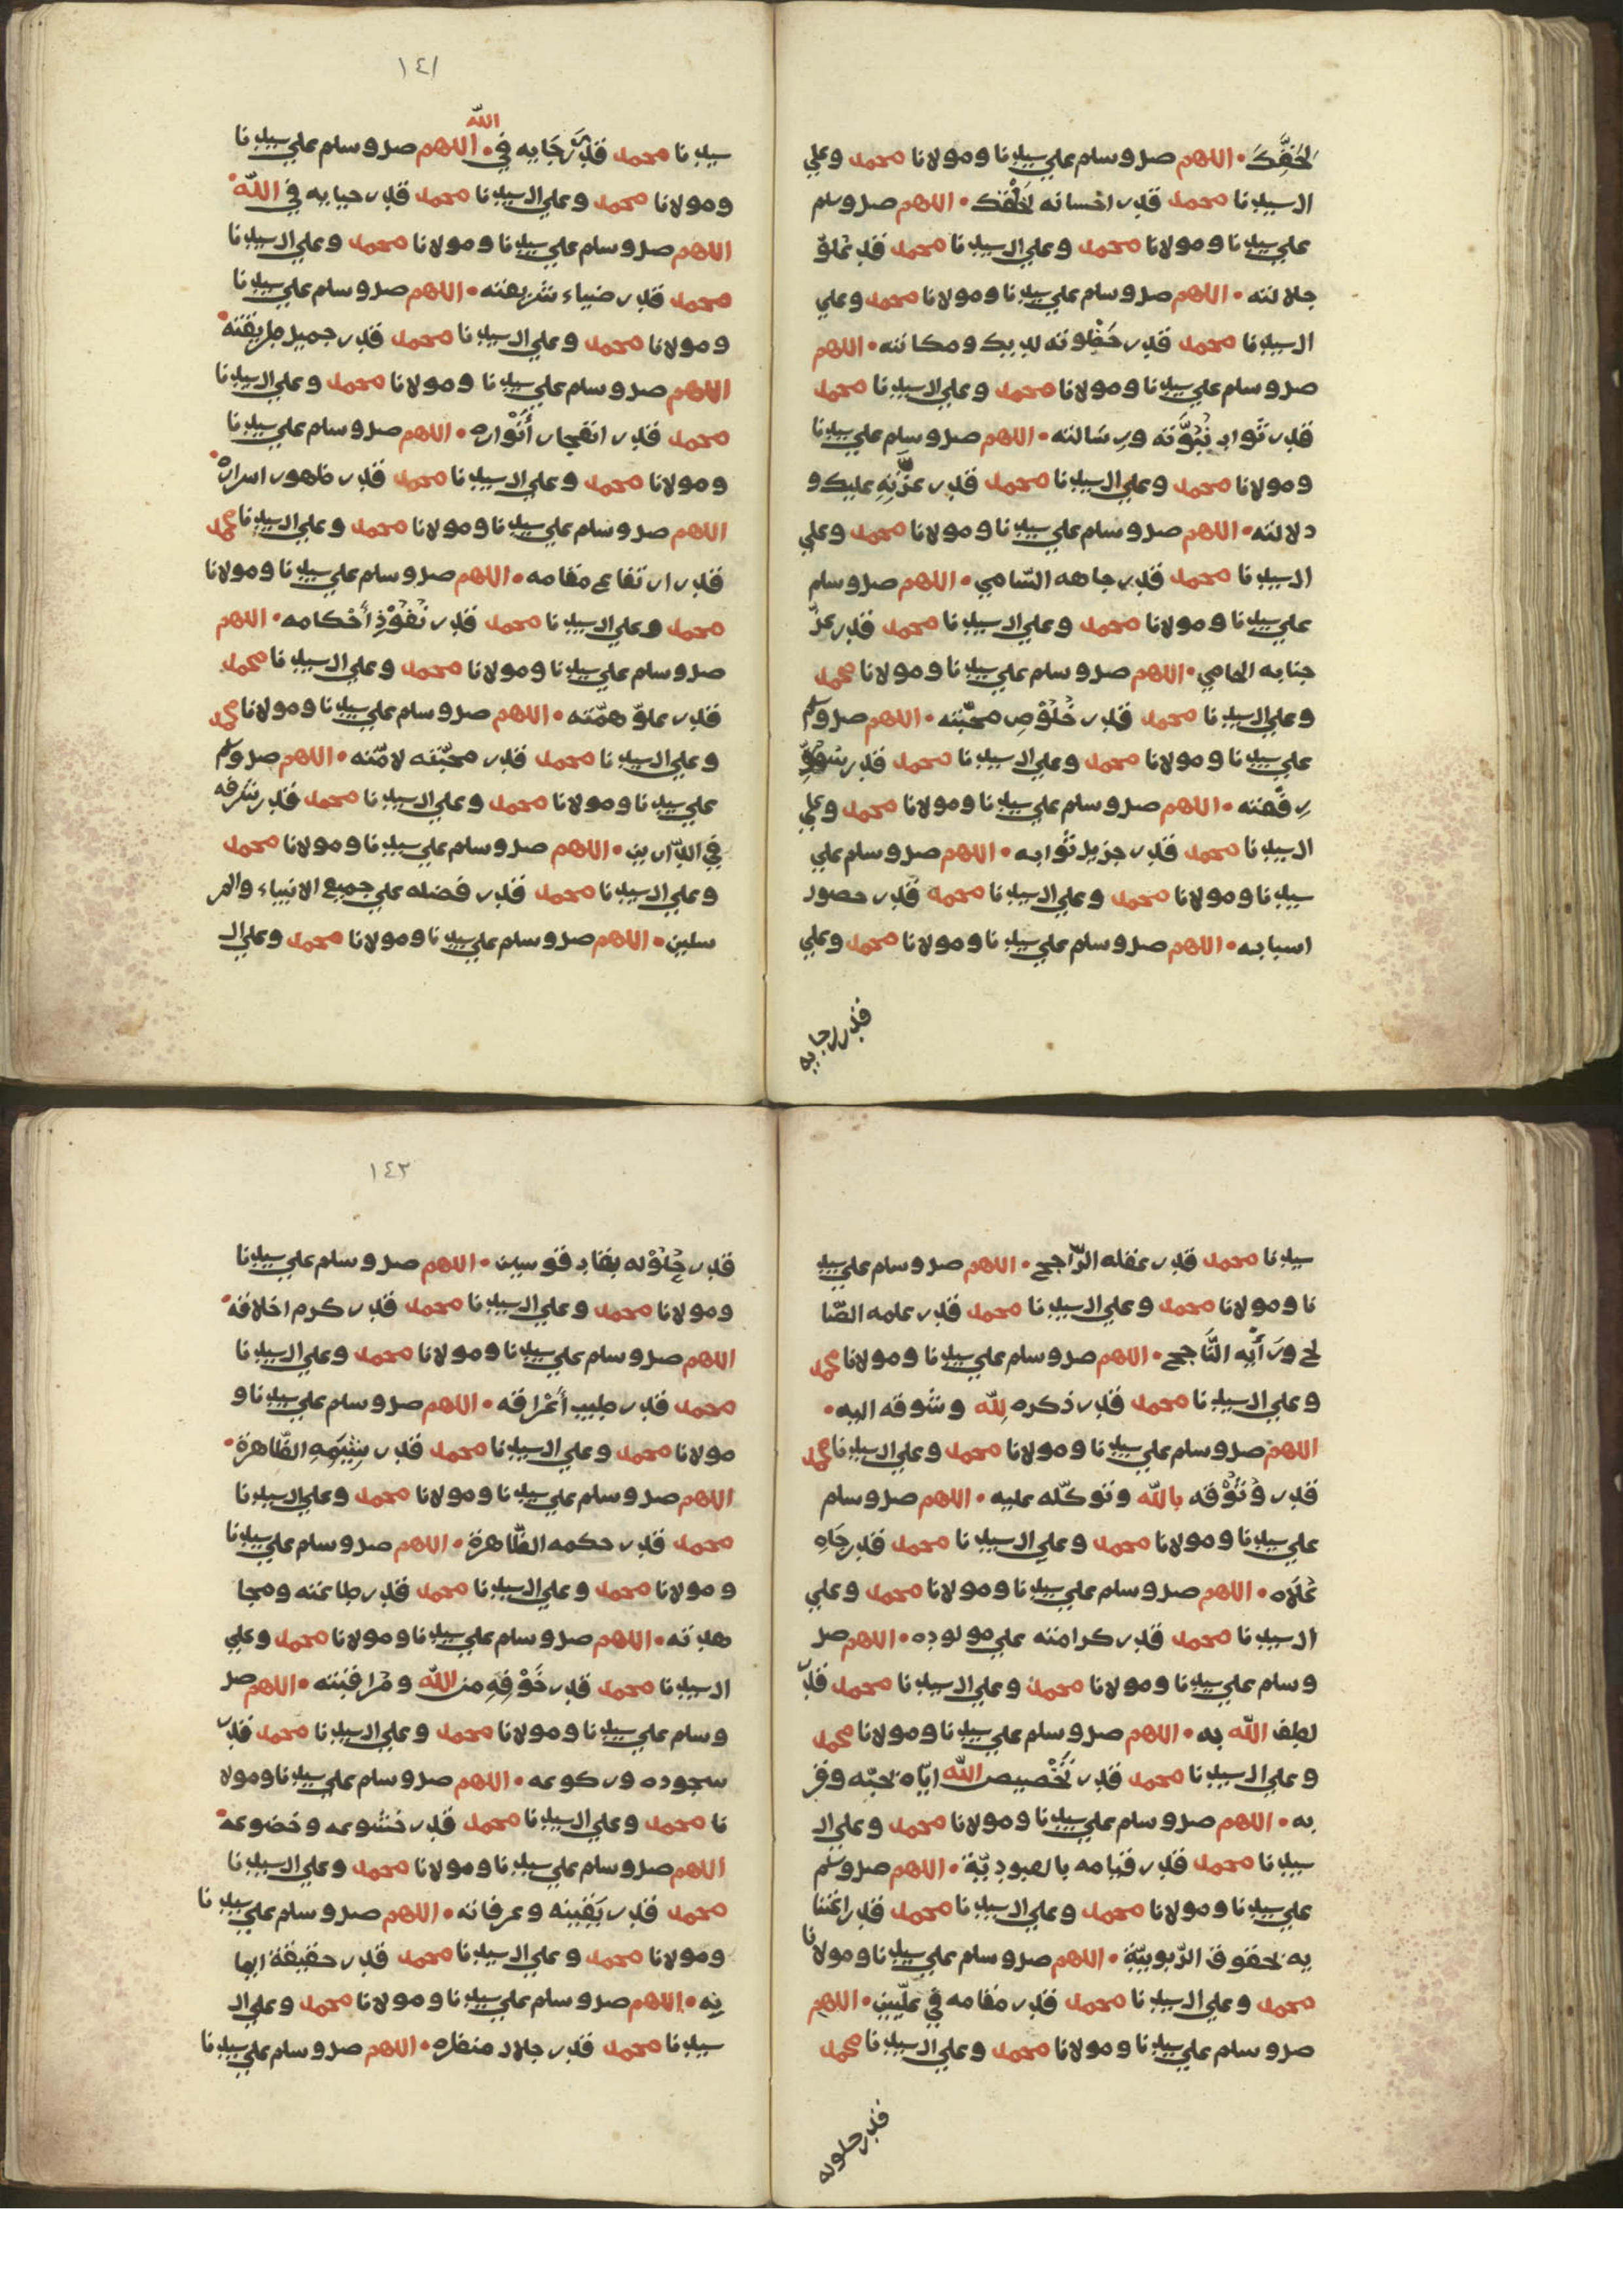 لحقك • اللهم صل وسلم علي سيدنا ومولانا محمد وعلي
ال سيدنا محمد قدر احسانه لخلقك • اللهم صل وسلم
علي سيدنا ومولانا محمد وعلي ال سيدنا محمد قدر علوّ
جلالته • اللهم صل وسلم علي سيدنا ومولانا محمد وعلي
ال سيدنا محمد قدر حظوته لديك ومكانته • اللهم
صل وسلم علي سيدنا ومولانا محمد وعلي ال سيدنا محمد
قدر ثواب نُبُوَّته ورسَالته • اللهم صل وسلم علي سيدنا
ومولانا محمد وعلي ال سيدنا محمد قدر عزّته عليك و
دلالته • اللهم صل وسلم علي سيدنا ومولانا محمد وعلي
ال سيدنا محمد قدر جاهه السّامي • اللهم صل وسلم
علي سيدنا ومولانا محمد وعلي ال سيدنا محمد قدر عزّ
جنابه الحامي • اللهم صل وسلم علي سيدنا ومولانا محمد
وعلي ال سيدنا محمد قدر خُلُوْصِ محبّته • اللهم صل وسلم
علي سيدنا ومولانا محمد وعلي ال سيدنا محمد قدر
رفعته • اللهم صل وسلم علي سيدنا ومولانا محمد وعلي
ال سيدنا محمد قدر جزيل ثوابه • اللهم صل وسلم علي
سيدنا ومولانا محمد وعلي ال سيدنا محمد قدر حصول
اسبابه • اللهم صل وسلم علي سيدنا ومولانا محمد وعلي
قدر رجايه
١٤١
سيدنا محمد قدر رَجَايه في الله • اللهم صل وسلم علي سيدنا
ومولانا محمد وعلي ال سيدنا محمد قدر حيايه في الله •
اللهم صل وسلم علي سيدنا ومولانا محمد وعلي ال سيدنا
محمد قدر ضياء شريعته • اللهم صل وسلم علي سيدنا
ومولانا محمد وعلي ال سيدنا محمد قدر جميل طريقته •
اللهم صل وسلم علي سيدنا ومولانا محمد وعلي ال سيدنا
محمد قدر انفجار أَنْواره • اللهم صل وسلم علي سيدنا
ومولانا محمد وعلي ال سيدنا محمد قدر ظهور اسراره •
اللهم صل وسلم علي سيدنا ومولانا محمد وعلي ال سيدنا محمد
قدر ارتفاع مقامه • اللهم صل وسلم علي سيدنا ومولانا
محمد وعلي ال سيدنا محمد قدر نُفُوْذِ أَحْكامه • اللهم
صل وسلم علي سيدنا ومولانا محمد وعلي ال سيدنا محمد
قدر علوّ همّته • اللهم صل وسلم علي سيدنا ومولانا محمد
وعلي ال سيدنا محمد قدر محبّته لامّته • اللهم صل وسلم
علي سيدنا ومولانا محمد وعلي ال سيدنا محمد قدر شرفه
في الدّارين • اللهم صل وسلم علي سيدنا ومولانا محمد
وعلي ال سيدنا محمد قدر فضله علي جميع الانبياء والمر
سلين • اللهم صل وسلم علي سيدنا ومولانا محمد وعلي ال
سيدنا محمد قدر عقله الرّاجح • اللهم صل وسلم علي سيد
نا ومولانا محمد وعلي ال سيدنا محمد قدر علمه الصّا
لح ورَأْيه النَّاجح • اللهم صل وسلم علي سيدنا ومولانا محمد
وعلي ال سيدنا محمد قدر ذكره لِلّه وشوقه اليه •
اللهم صل وسلم علي سيدنا ومولانا محمد وعلي ال سيدنا محمد
قدر وُثُوْقه بالله وتوكّله عليه • اللهم صل وسلم
علي سيدنا ومولانا محمد وعلي ال سيدنا محمد قدر جَاهِ
عُلاه • اللهم صل وسلم علي سيدنا ومولانا محمد وعلي
ال سيدنا محمد قدر كرامته علي مولوده • اللهم صل
وسلم علي سيدنا ومولانا محمد وعلي ال سيدنا محمد قدر
لطف الله به • اللهم صل وسلم علي سيدنا ومولانا محمد
وعلي ال سيدنا محمد قدر تَخْصيص الله ايّاه بحبّه وقر
به • اللهم صل وسلم علي سيدنا ومولانا محمد وعلي ال
سيدنا محمد قدر قيامه بالعبوديّة • اللهم صل وسلم
علي سيدنا ومولانا محمد وعلي ال سيدنا محمد قدر اعتنا
يه بحقوق الرّبوبيّة • اللهم صل وسلم علي سيدنا ومولانا
محمد وعلي ال سيدنا محمد قدر مقامه في علّيين • اللهم
صل وسلم علي سيدنا ومولانا محمد وعلي ال سيدنا محمد
قدر حلوله
١٤٢
قدر حُلُوْله بقاب قوسين • اللهم صل وسلم علي سيدنا
ومولانا محمد وعلي ال سيدنا محمد قدر كرم اخلاقه •
اللهم صل وسلم علي سيدنا ومولانا محمد وعلي ال سيدنا
محمد قدر طيب أَعْراقه • اللهم صل وسلم علي سيدنا و
مولانا محمد وعلي ال سيدنا محمد قدر شِيَمِهِ الطّاهرة •
اللهم صل وسلم علي سيدنا ومولانا محمد وعلي ال سيدنا
محمد قدر حكمه الظّاهرة • اللهم صل وسلم علي سيدنا
ومولانا محمد وعلي ال سيدنا محمد قدر طاعته ومجا
هدته • اللهم صل وسلم علي سيدنا ومولانا محمد وعلي
ال سيدنا محمد قدر خَوْفِهِ من الله ومُراقبته • اللهم صل
وسلم علي سيدنا ومولانا محمد وعلي ال سيدنا محمد قدر
سجوده وركوعه • اللهم صل وسلم علي سيدنا ومولا
نا محمد وعلي ال سيدنا محمد قدر خشوعه وخضوعه •
اللهم صل وسلم علي سيدنا ومولانا محمد وعلي ال سيدنا
محمد قدر يَقينه وعرفانه • اللهم صل وسلم علي سيدنا
ومولانا محمد وعلي ال سيدنا محمد قدر حقيقة ايما
نِه • اللهم صل وسلم علي سيدنا ومولانا محمد وعلي ال
سيدنا محمد قدر جلال منظره • اللهم صل وسلم علي سيدنا